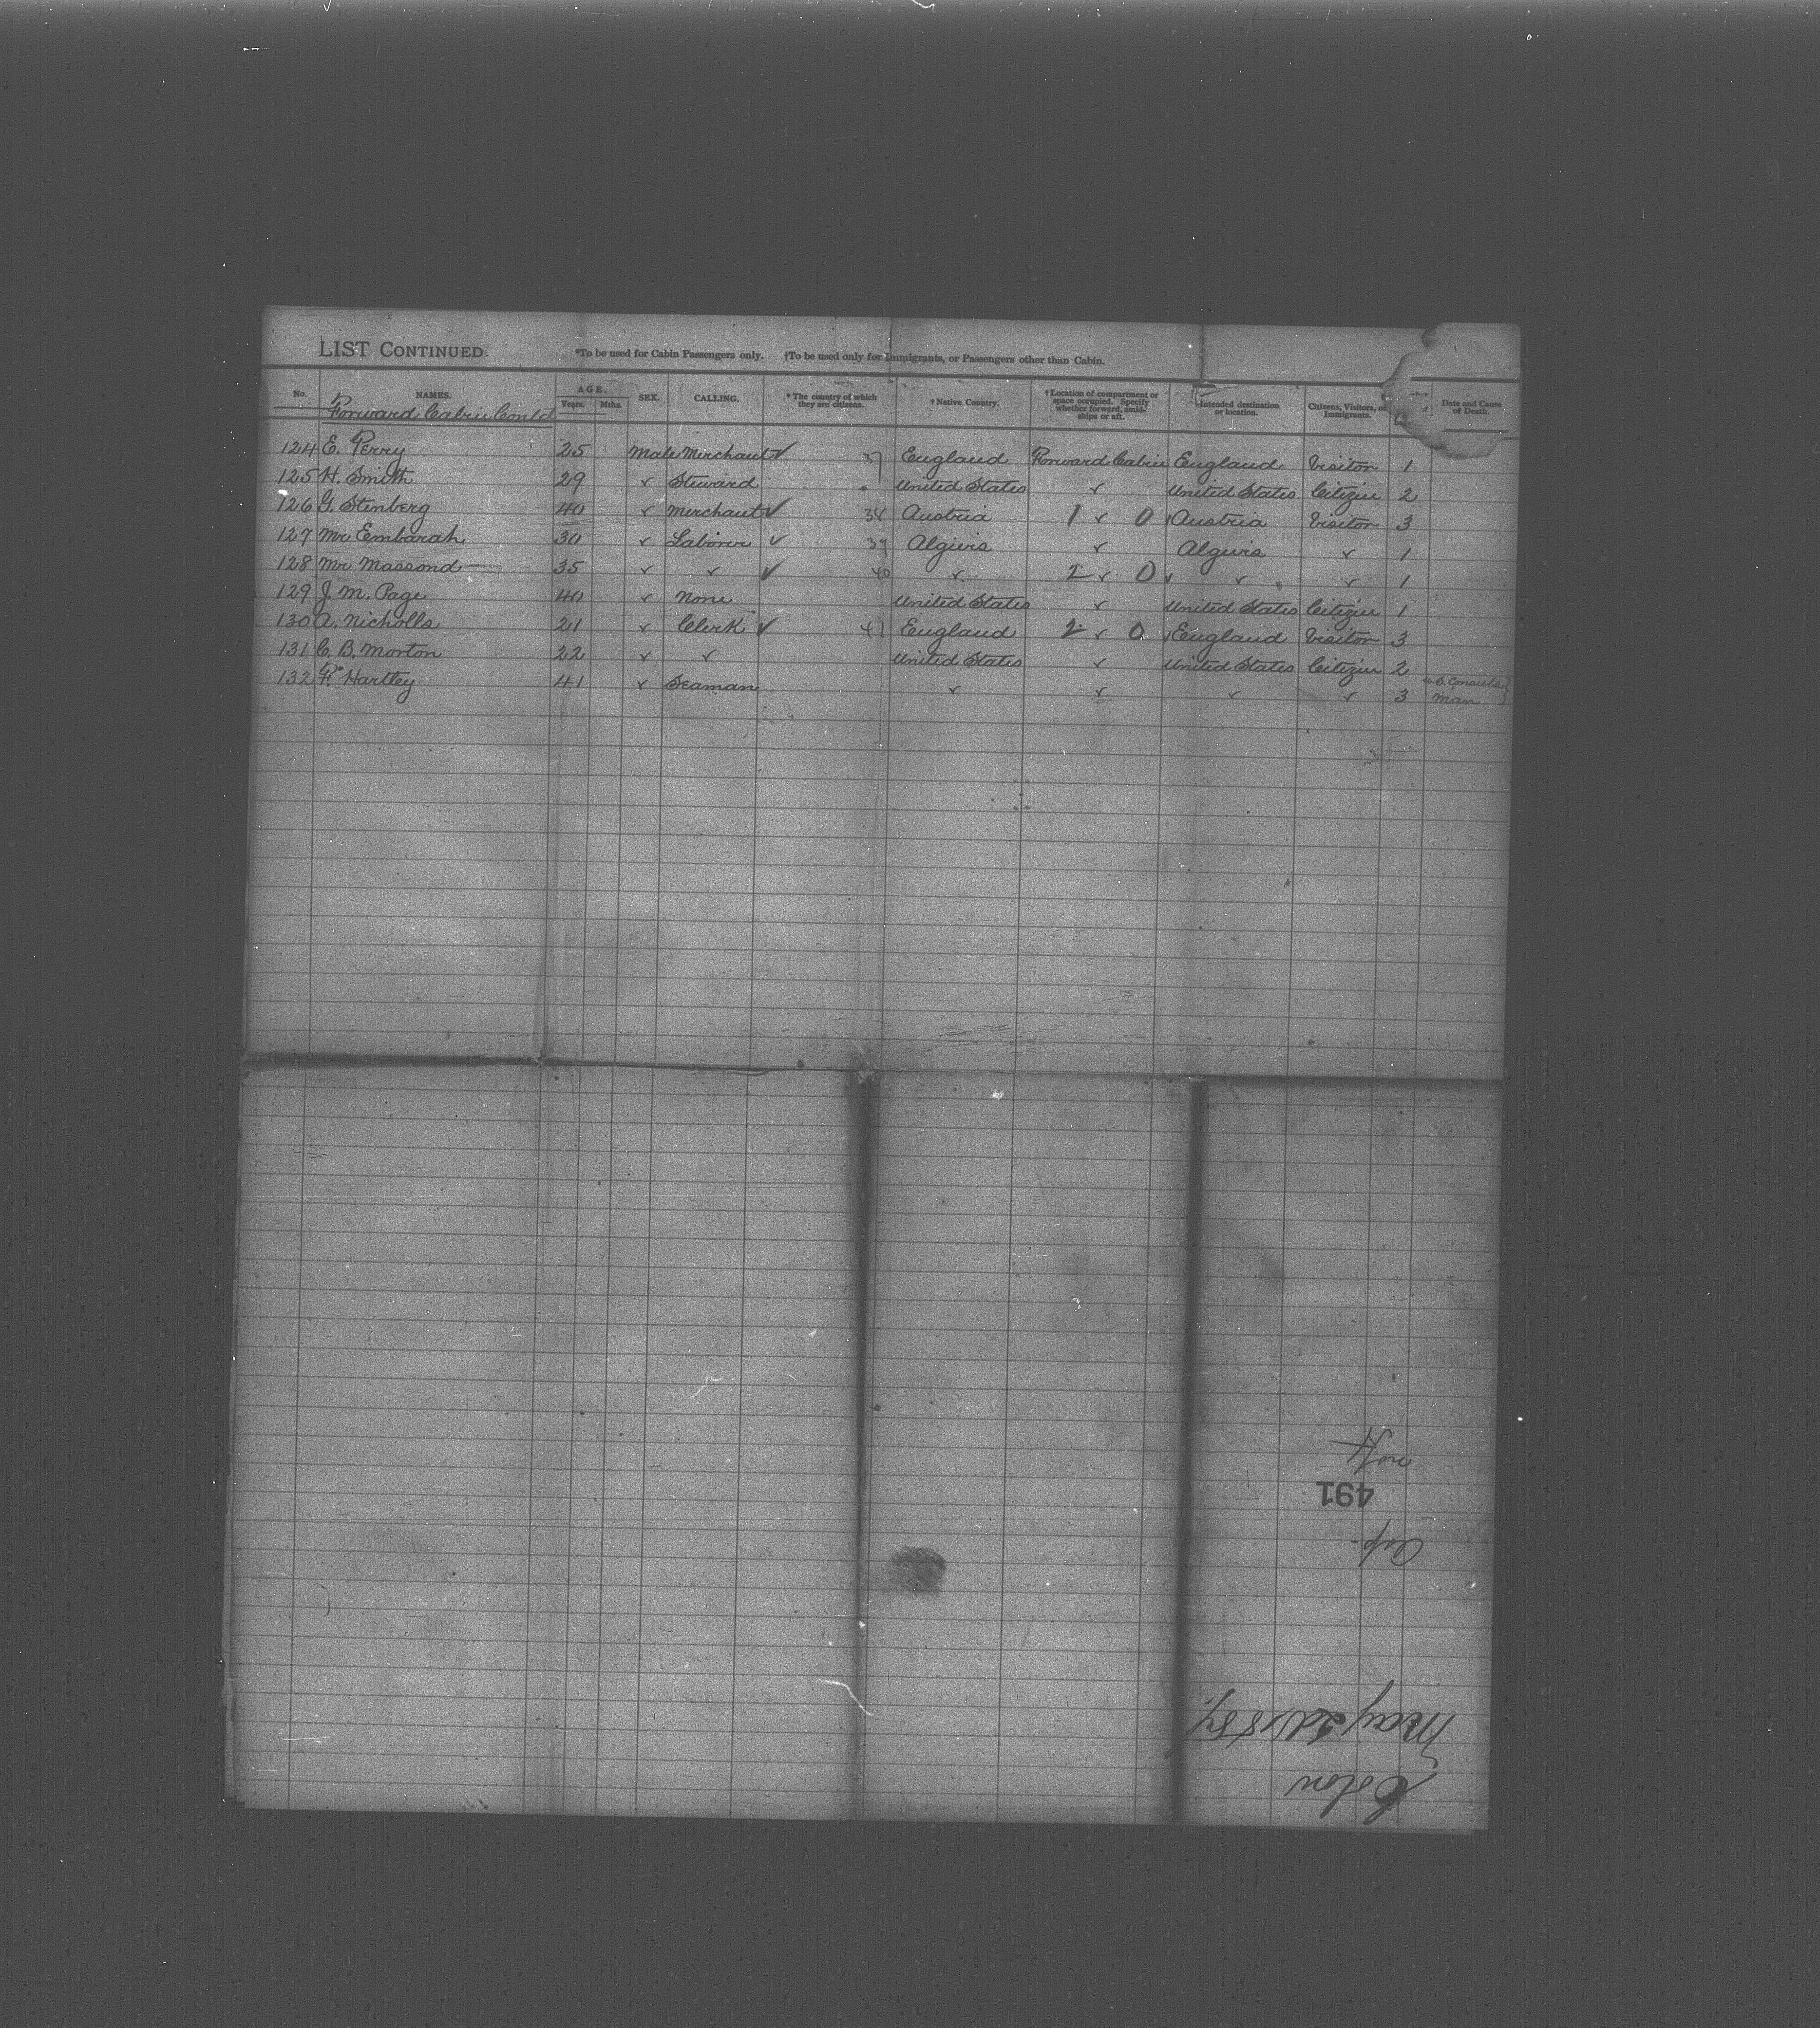 LIST CONTINUED.
*To be used for Cabin Passengers only. †To be used only for Immigrants, or Passengers other than Cabin.
No. NAMES. AGE. Years. Mths. SEX. CALLING. *The country of which they are citizens. †Native Country. †Location of compartment or space occupied. Specify whether forward, amidships or aft. Intended destination or location. Citizens, Visitors, or Immigrants. Date and Cause of Death.
Forward Cabin Contd
124 E. Perry 25 Male Merchant ✓ 37 England Forward Cabin England Visitor 1
125 H. Smith 29 ✓ Steward United States ✓ United States Citizen 2
126 G. Stenberg 40 ✓ Merchant ✓ 38 Austria 1 ✓ 0 Austria Visitor 3
127 Mr Embarah 30 ✓ Laborer ✓ 39 Algiers ✓ Algiers ✓ 1
128 Mr Massond 35 ✓ ✓ ✓ 40 ✓ 2 ✓ 0 ✓ ✓ 1
129 J. M. Page 40 ✓ None United States ✓ United States Citizen 1
130 A. Nicholls 21 ✓ Clerk ✓ 41 England 2 ✓ 0 England Visitor 3
131 C. B. Morton 22 ✓ ✓ United States ✓ United States Citizen 2
132 P. Hartley 41 ✓ Seaman ✓ ✓ ✓ ✓ 3 U.S. Consuls Man
491
May 2d 1887.
Colon